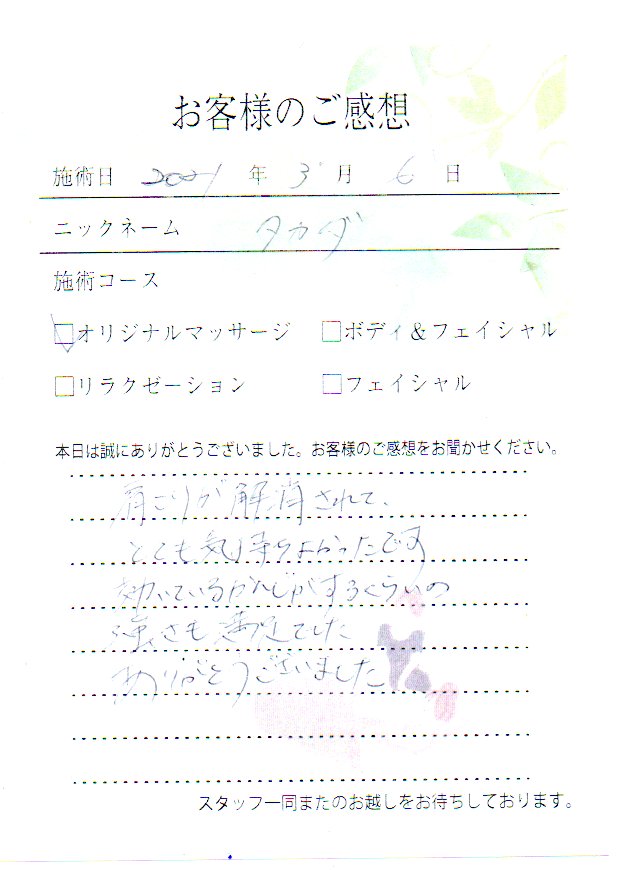 お客様のご感想
施術日 2021 年 3 月 6 日
ニックネーム タカダ
施術コース
□オリジナルマッサージ □ボディ&フェイシャル
□リラクゼーション □フェイシャル
本日は誠にありがとうございました。お客様のご感想をお聞かせください。
肩こりが解消されて、
とても気持ちよかったです
効いているかんじがするくらいの
強さも満足でした
ありがとうございました
スタッフ一同またのお越しをお待ちしております。